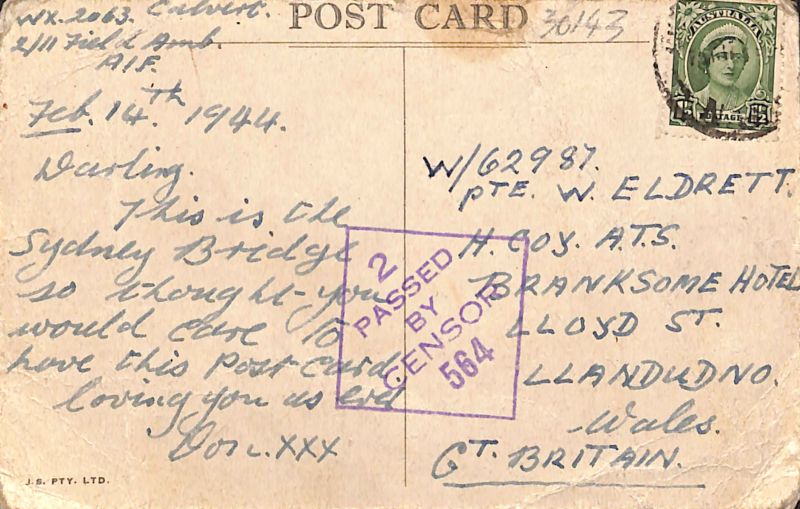 WX.2063. Calvert.
2/11 Field Amb.
A.I.F.
POST CARD
30143
AUSTRALIA
POSTAGE
Feb. 14.th 1944.
Darling.
This is the
Sydney Bridge
so thought you
would care to
have this Post-Card
loving you as ever
Don. XXX
J.S. PTY. LTD.
2
PASSED
BY
CENSOR
564
W/62987.
PTE. W. ELDRETT.
H. COY. A.T.S.
BRANKSOME HOTEL
LLOYD ST.
LLANDUDNO.
Wales.
GT. BRITAIN.